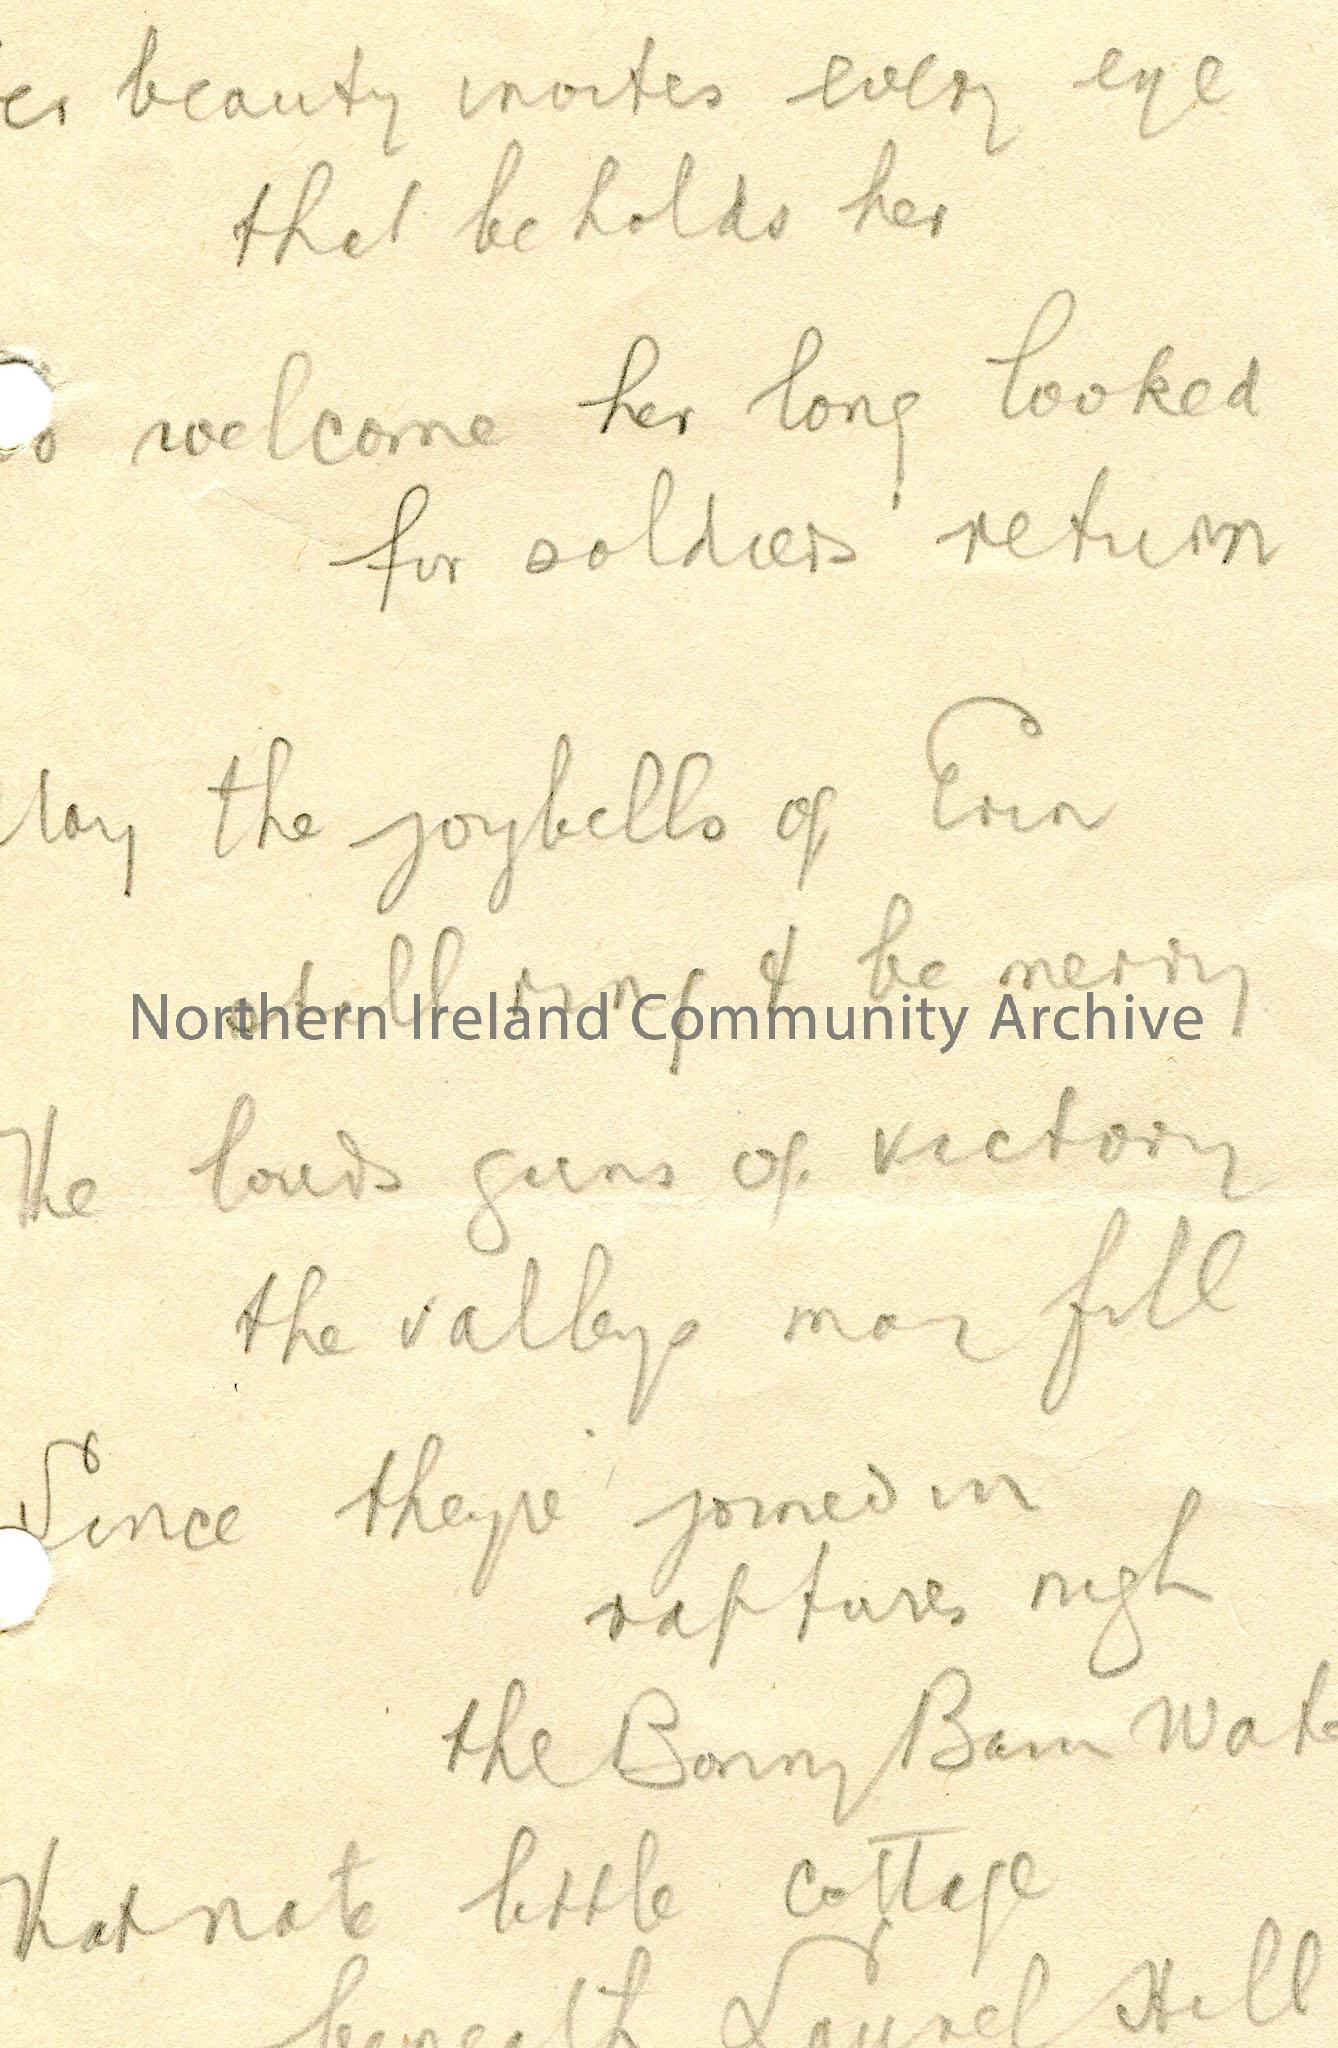 her beauty invites every eye
that beholds her
to welcome her long looked
for soldiers return
May the joybells of Erin
still ring & be merry
Northern Ireland Community Archive
The louds guns of victory
the valleys may fill
Since theyre joined in
raptures nigh
the Bonny Bann Wate
That nate little cottage
beneath Laurel Hill